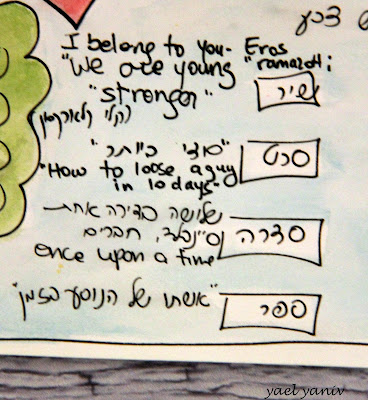 צבע
I belong to you- Eros
"We are young" ramazoti
שיר "stronger"
(קלי קלארקסון)
"סודי ביותר"
סרט "How to loose a guy
in 10 days"
שלושה בדירה אחת
סדרה סיינפלד, חברים
once upon a time
ספר "אשתו של הנוסע בזמן"
yael yaniv